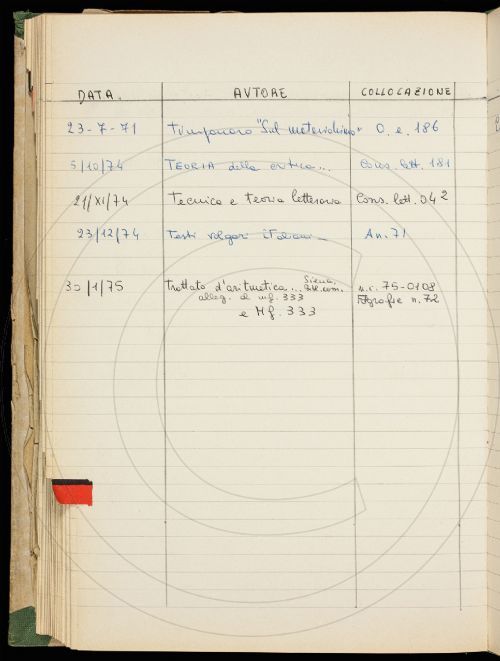 DATA. AUTORE COLLOCAZIONE
23-7-71 Timpanaro "Sul materialismo" O. e. 186
5/10/74 TEORIA della critica... Cons. lett. 181
21/XI/74 Tecnica e teoria letteraria Cons. lett. 04²
23/12/74 Testi volgari italiani An. 71
30/1/75 Trattato d'aritmetica... Siena, Bib. com. n.c. 75-0108
alleg. al mf. 333 Fotografie n. 72
e Mf. 333